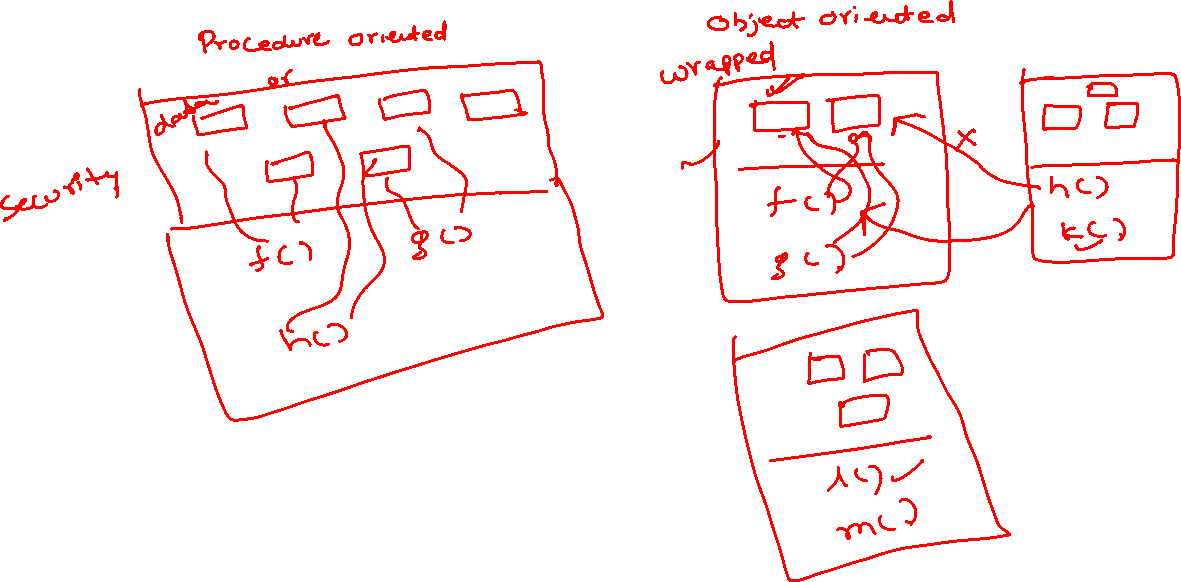 Procedure oriented
or
data
security
f()
g()
h()
Object oriented
wrapped
f()
g()
x
h()
k()
l()
m()